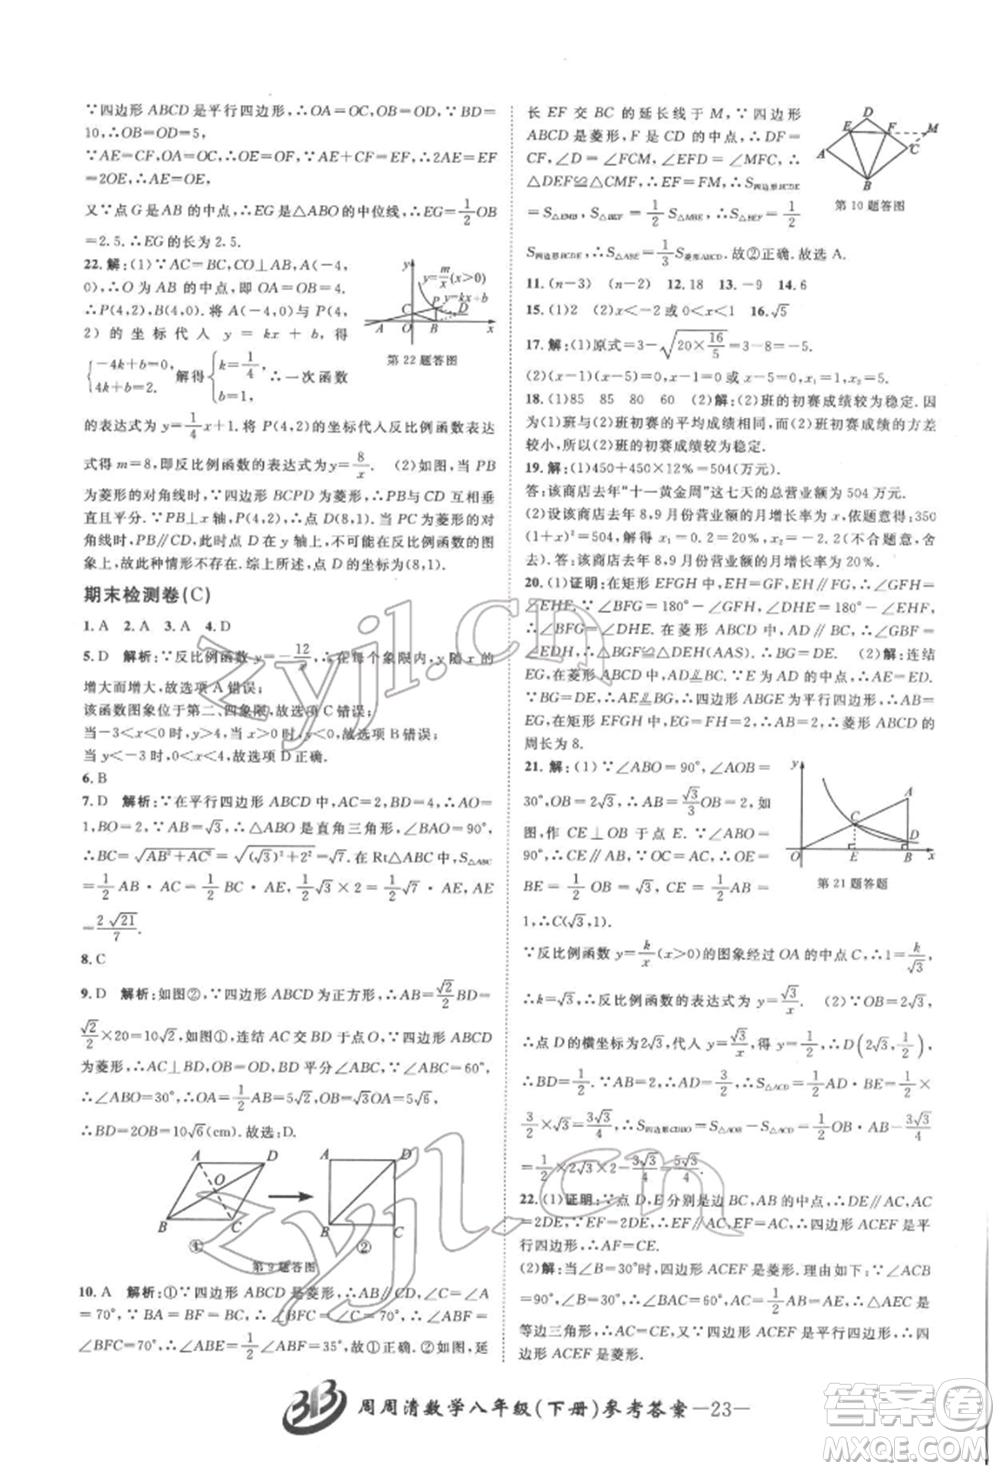 ∵四边形 ABCD 是平行四边形,∴OA=OC,OB=OD.∵BD=
10,∴OB=OD=5,
∵AE=CF,OA=OC,∴OE=OF.∵AE+CF=EF,∴2AE=EF
=2OE,∴AE=OE.
又∵点 G 是 AB 的中点,∴EG 是△ABO 的中位线,∴EG=1/2 OB
=2.5,∴EG 的长为 2.5.
22.解:(1)∵AC=BC,CO⊥AB,A(-4,
0),∴O 为 AB 的中点,即 OA=OB=4,
∴P(4,2),B(4,0).将 A(-4,0)与 P(4,
2)的坐标代人 y=kx+b,得
{-4k+b=0, 4k+b=2, 解得{k=1/4, b=1, ∴一次函数
y=m/x(x>0)
y=kx+b
P
D
C
A
O
B
x
y
第 22 题答图
的表达式为 y=1/4x+1.将 P(4,2)的坐标代人反比例函数表达
式得 m=8,即反比例函数的表达式为 y=8/x. (2)如图,当 PB
为菱形的对角线时,∵四边形 BCPD 为菱形,∴PB 与 CD 互相
垂直且平分,∵PB⊥x 轴,∴点 D(8,1).当 PC 为菱形的对
角线时,PB∥CD,此时点 D 在 y 轴上,不可能在反比例函数的图
象上,故此种情形不存在.综上所述,点 D(8,1).
期末检测卷(C)
1.A 2.A 3.A 4.D
5.D 解析:∵反比例函数 y=-12/x,∴在每个象限内,y 随 x 的
增大而增大,故选项 A 错误;
该函数图象位于第二、四象限,故选项 C 错误;
当-3<x<0 时,y>4,故选项 B 错误;
当 y<-3 时,x<4,故选项 D 正确.
6.B
7.D 解析:∵在平行四边形 ABCD 中,AC=2,BD=4,∴AO=
1,BO=2.∵AB=√3,∴△ABO 是直角三角形,∠BAO=90°,
∴BC=√(AB²+AC²)=√((√3)²+2²)=√7.在 Rt△ABC 中,S△ABC
=1/2 AB·AC=1/2 BC·AE,∴1/2×√3×2=1/2×√7·AE,∴AE
=2√21/7.
8.C
9.D 解析:如图②,∵四边形 ABCD 为正方形,∴AB=√2/2 AC=
√2/2×20=10√2(cm).如图①,连结 AC 交 BD 于点 O,∵四边形 ABCD
为菱形,∴AC⊥BD,BD 平分∠ABC.∵∠ABC=60°,
∴∠ABO=30°,∴AO=1/2AB=5√2,OB=√3AO=5√6(cm),
∴BD=2OB=10√6(cm).故选:D.
A D
O
B C
①
A D
B C
②
第 9 题答图
10.A 解析:①∵四边形 ABCD 是菱形,∴AB=BC,∠A=
∠C=70°.∵BA=BF=BC,∴∠BFC=∠C=70°,
∴∠FBC=40°,∠EBF=1/2∠ABF=35°,故①正确.②如图,延
长 EF 交 BC 的延长线于 M,∵四边形
ABCD 是菱形,F 是 CD 的中点,∴DF=
CF,∠D=∠FCM,∠EFD=∠MFC,
∴△DEF≌△CMF,∴EF=FM,∴S四边形BCDE
=S△EMB,S△BEF=1/2S△MBE,∴S△BEF=1/2
D
E F M
A C
B
第 10 题答图
S四边形BCDE,∴S△BEF=1/3S菱形ABCD.故②正确.故选 A.
11.(n-3) (n-2) 12.18 13.-9 14.6
15.(1)2 (2)x<-2 或 0<x<1 16.√5
17.解:(1)原式=3-√(20×16/5)=3-8=-5.
(2)(x-1)(x+1)=0,∴x-1=0 或 x+1=0,∴x₁=1,x₂=-1.
18.(1)85 85 80 60 (2)解:(2)班的初赛成绩较为稳定.因
为(1)班与(2)班初赛的平均成绩相同,而(2)班初赛成绩的方差
较小,所以(2)班的初赛成绩较为稳定.
19.解:(1)450+450×12%=504(万元).
答:该商店去年“十一黄金周”这七天的总营业额为 504 万元.
(2)设该商店去年 8,9 月份营业额的月增长率为 x,依题意得:350
(1+x)²=504,解得 x₁=0.2=20%,x₂=-2.2(不合题意,舍去).
答:该商店去年 8,9 月份营业额的月增长率为 20%.
20.(1)证明:在矩形 EFGH 中,EH=FG,EH∥FG,∴∠GFH=
∠EHF.∵∠BFG=180°-∠GFH,∠DHE=180°-∠EHF,
∴∠BFG=∠DHE.在菱形 ABCD 中,AD∥BC,∴∠GBF=
∠EDH,∴△BGF≌△DEH(AAS),∴BG=DE.(2)解:连结
EG.在菱形 ABCD 中,AD=BC.∵E 为 AD 中点,∴AE=ED.
∵BG=DE,∴AE=BG,∴四边形 ABGE 为平行四边形,∴AB=
EG.在矩形 EFGH 中,EG=FH=2,∴AB=2,∴菱形 ABCD 的
周长为 8.
21.解:(1)∵∠ABO=90°,∠AOB=
30°,OB=2√3,∴AB=√3/3 OB=2.如
图,作 CE⊥OB 于点 E.∵∠ABO=
90°,∴CE∥AB.∵OC=AC,∴OE=
BE=1/2OB=√3,CE=1/2AB=
1,∴C(√3,1).
y
A
C
D
O E B x
第 21 题答题
∵反比例函数 y=k/x(x>0)的图象经过 OA 的中点 C,∴1=k/√3,
∴k=√3,∴反比例函数的表达式为 y=√3/x. (2)∵OB=2√3,
∴点 D 的横坐标为 2√3,代人 y=√3/x,得 y=1/2,∴D(2√3,1/2),
∴BD=1/2.∵AB=2,∴AD=3/2,∴S△ACD=1/2AD·BE=1/2×
3/2×√3=3√3/4,∴S四边形CDBO=S△AOB-S△ACD=1/2OB·AB-3√3/4
=1/2×2√3×2-3√3/4=5√3/4.
22.(1)证明:∵点 D,E 分别是边 BC,AB 上的中点,∴DE∥AC,AC
=2DE,∵EF=2DE,∴EF∥AC,EF=AC,∴四边形 ACEF 是平
行四边形,∴AF=CE.
(2)解:当∠B=30°时,四边形 ACEF 为菱形.理由如下:∵∠ACB
=90°,∠B=30°,∴∠BAC=60°,AC=1/2AB=AE,∴△AEC 是
等边三角形,∴AC=CE.又∵四边形 ACEF 是平行四边形,∴四边
形 ACEF 是菱形.
周周清数学八年级(下册)参考答案—23—
zyjl.cn
zyjl.cn
答案圈
MXQE.COM